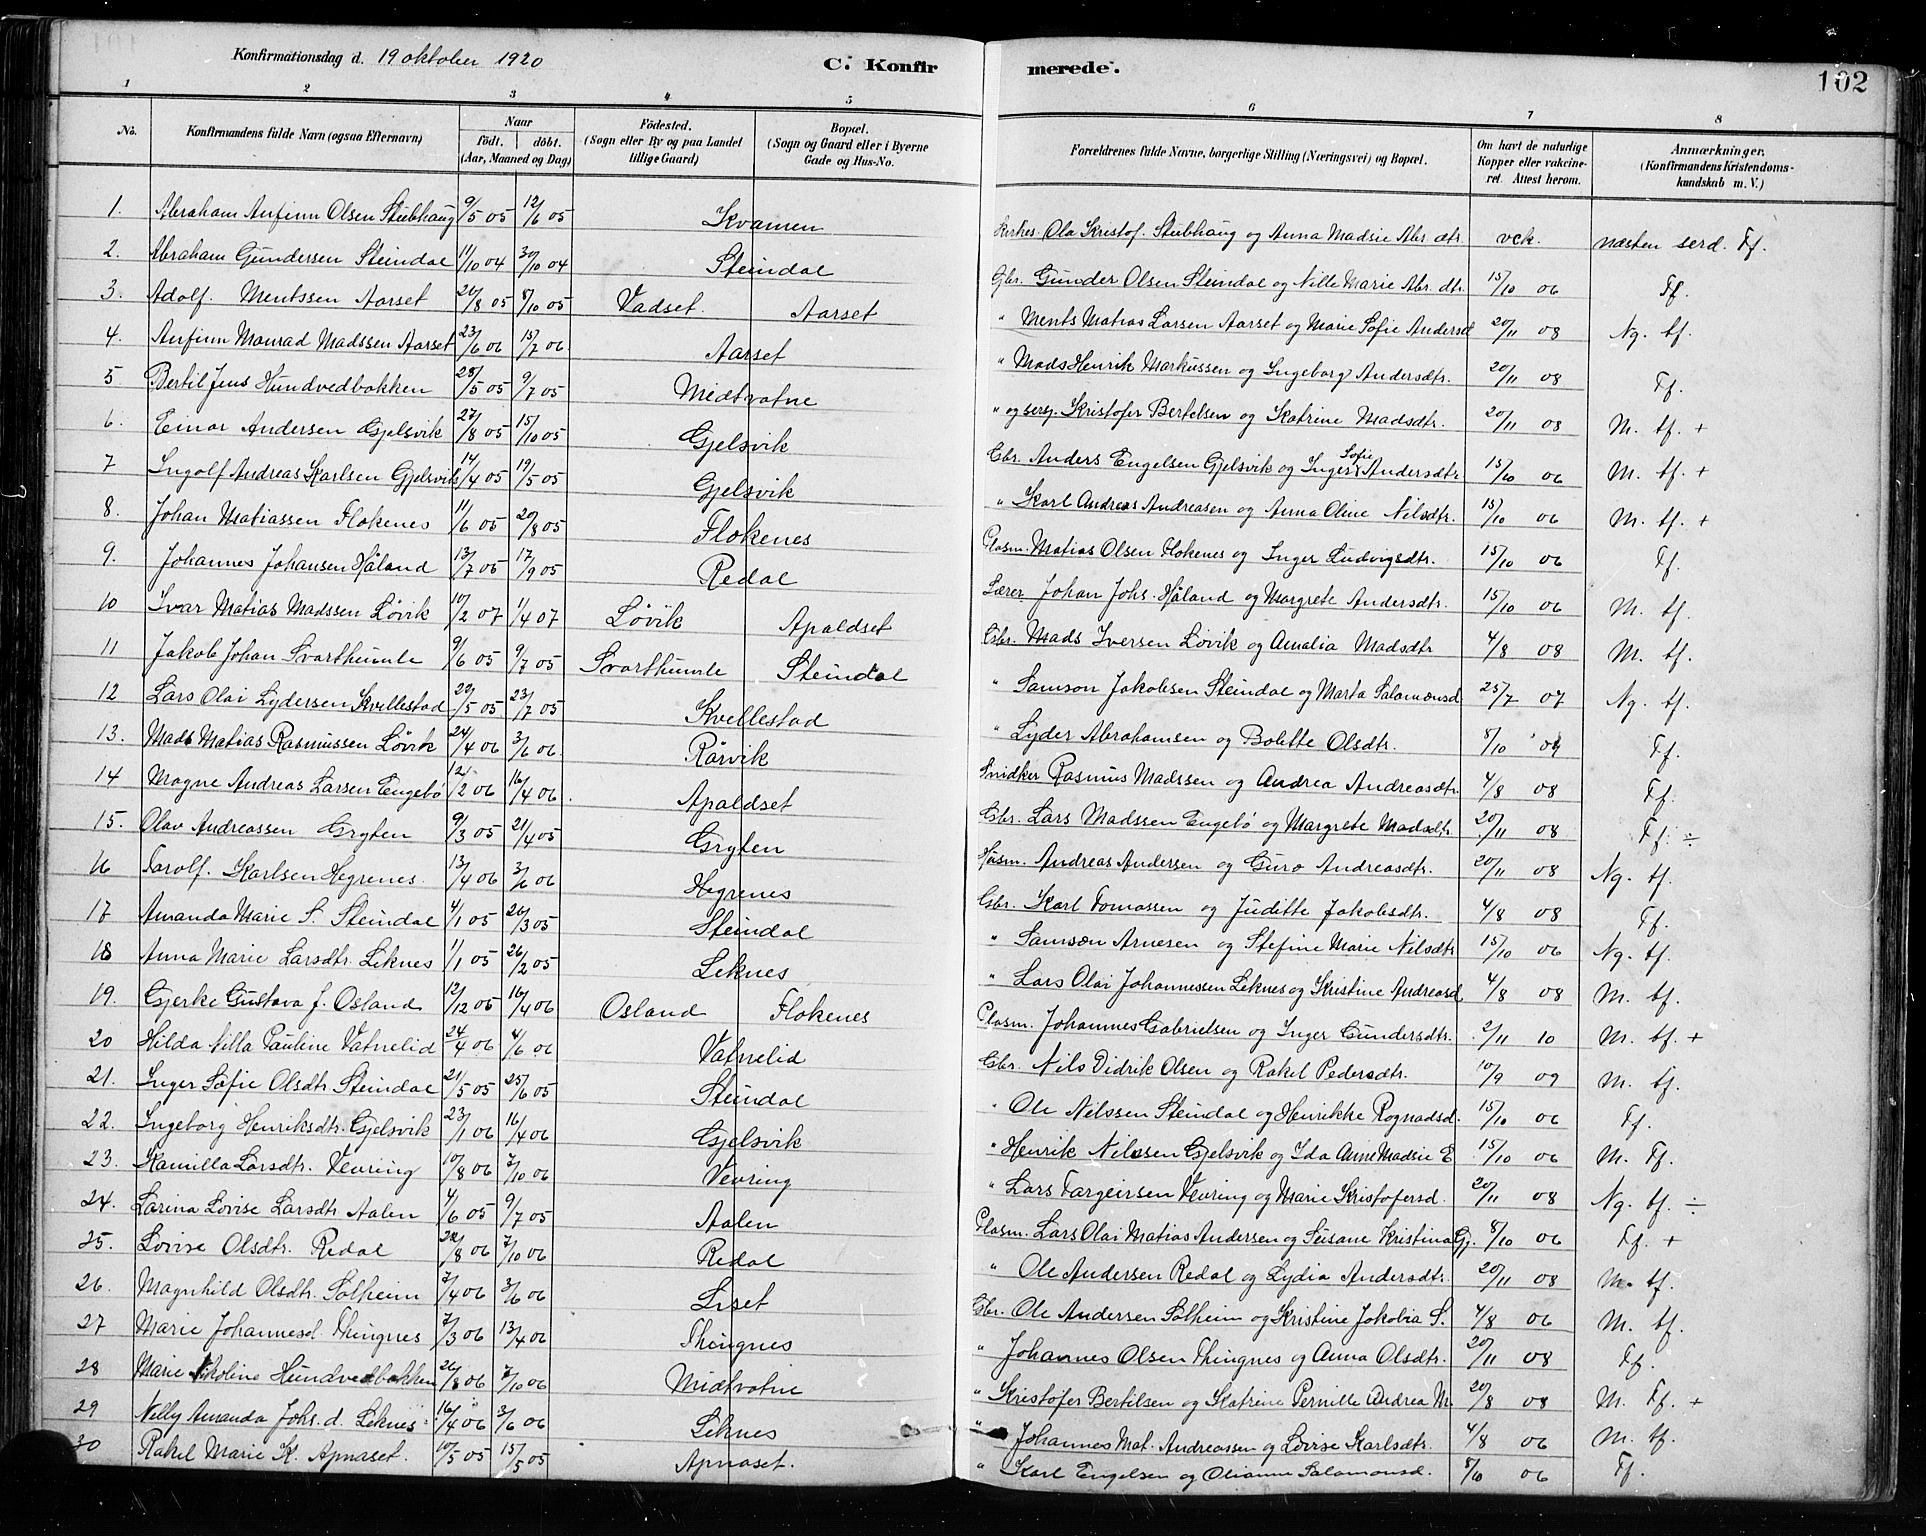 Konfirmationsdag d. 19 oktober 1920 C. Konfirmerede. 102
1 2 3 4 5 6 7 8
No. Konfirmandens fulde Navn (ogsaa Efternavn) Naar födt. döbt. (Aar, Maaned og Dag) Födested. (Sogn eller By og paa Landet tillige Gaard) Bopæl. (Sogn og Gaard eller i Byerne Gade og Hus-No. Forældrenes fulde Navne, borgerlige Stilling (Næringsvei) og Bopæl. Om havt de naturlige Kopper eller vakcineret. Attest herom. Anmærkninger. (Konfirmandens Kristendomskundskab m. V.)
1. Abraham Anfinn Olsen Stubhaug 9/5 05 12/6 05 Kvamen Kirkes. Ola Kristof. Stubhaug og Anna Madsie Abr dtr. vck. næsten serd. Tf.
2. Abraham Gundersen Steindal 11/10 04 30/10 04 Steindal Gbr. Gunder Olsen Steindal og Nille Marie Abr. dtr. 15/10 06 Tf.
3. Adolf. Mentssen Aarset 20/8 05 8/10 05 Vadset. Aarset " Ments Matias Larsen Aarset og Marie Sofie Andersd 20/11 08 Ng. tf.
4. Anfinn Monrad Madssen Aarset 23/6 06 15/7 06 Aarset " Mads Henrik Markussen og Ingeborg Andersdtr. 20/11 08 Tf.
5 Bertil Jens Hundvedbakken 28/5 05 9/7 05 Midtvatne " og sersj. Kristofer Bertelsen og Katrine Madsdtr. 20/11 08 M. tf. +
6. Einar Andersen Gjelsvik 27/8 05 15/10 05 Gjelsvik Gbr. Anders Engelsen Gjelsvik og Inger Sofie Andersdtr 15/10 06 M. tf. +
7 Ingolf Andreas Karlsen Gjelsvik 14/4 05 19/5 05 Gjelsvik " Karl Andreas Andreasen og Anna Oline Nilsdtr. 15/10 06 M. tf. +
8. Johan Matiassen Flokenes 11/6 05 20/8 05 Flokenes Plasm. Matias Olsen Flokenes og Inger Ludvigsdtr. 15/10 06 Tf.
9. Johannes Johansen Håland 13/7 05 17/9 05 Redal Lærer Johan Johs. Håland og Margrete Andersdtr. 15/10 06 M. tf.
10 Ivar Matias Madssen Lövik 10/2 07 1/4 07 Lövik Apaldset Gbr. Mads Iversen Lövik og Amalia Madsdtr 4/8 08 M. tf.
11 Jakob Johan Svarthumle 9/6 05 9/7 05 Svarthumle Steindal " Samson Jakobsen Steindal og Marta Salamonsd 25/7 07 Ng. tf.
12 Lars Olai Lydersen Kvellestad 22/5 05 23/7 05 Kvellestad " Lyder Abrahamsen og Bolette Olsdtr. 8/10 Tf.
13. Mads Matias Rasmussen Lövik 24/4 06 3/6 06 Rörvik Snidker Rasmus Madssen og Andrea Andreasdtr 4/8 08 Tf.
14 Magne Andreas Larsen Engebö 12/2 06 16/4 06 Apaldset Gbr. Lars Madssen Engebö og Margrete Madsdtr. 20/11 08 Tf. ÷
15. Olav Andreassen Gryten 9/3 05 21/4 05 Gryten Husm. Andreas Andersen og Guro Andreasdtr. 20/11 08 Ng. tf.
16 Torolf. Karlsen Hegrenes. 13/4 06 3/6 06 Hegrenes Gbr. Karl Tomassen og Juditte Jakobsdtr. 4/8 08 Tf.
17 Amanda Marie S. Steindal 4/1 05 26/3 05 Steindal " Samson Arnesen og Stefine Marie Nilsdtr 15/10 06 Ng. tf.
18 Anna Marie Larsdtr. Leknes 1/1 05 26/2 05 Leknes " Lars Olai Johannessen Leknes og Kristine Andreasd 4/8 08 M. tf.
19. Gjerke Gustava J. Osland 12/12 05 16/4 06 Osland Flokenes Plasm. Johannes Gabrielsen og Inger Gundersdtr. 2/11 10 M. tf. +
20 Hilda Nilla Pauline Vatnelid 24/4 06 4/6 06 Vatnelid Gbr. Nils Didrik Olsen og Rakel Pedersdtr. 10/9 09 M. tf.
21. Inger Sofie Olsdtr Steindal 21/5 05 25/6 05 Steindal " Ole Nilssen Steindal og Henrikke Rognaldsd. 15/10 06 Tf.
22. Ingeborg Henriksdtr. Gjelsvik 23/1 06 16/4 06 Gjelsvik " Henrik Nilssen Gjelsvik og Ida Anne Madsie E 15/10 06 M. Tf.
23. Kamilla Larsdtr. Vevring 10/8 06 7/10 06 Vevring " Lars Torgeirsen Vevring og Marie Kristofersd. 20/11 08 Ng. tf. ÷
24. Larina Lovise Larsdtr Aalen 4/6 05 9/7 05 Aalen Plasm. Lars Olai Matias Andersen og Susane Kristina Gj. 8/10 06 Tf. +
25. Lovise Olsdtr. Redal 22/8 06 7/10 06 Redal " Ole Andersen Redal og Lydia Andersdtr. 20/11 08 M. tf.
26. Magnhild Olsdtr. Solheim 7/4 06 3/6 06 Liset Gbr. Ole Andersen Solheim og Kristine Jakobia S. 4/8 06 M. tf.
27 Marie Johannesd. Thingnes 7/3 06 13/4 06 Thingnes " Johannes Olsen Thingnes og Anna Olsdtr. 20/11 08 Tf.
28 Marie Nikoline Hundvedbakken 26/8 06 7/10 06 Midtvatne " Kristofer Bertilsen og Katrine Pernille Andrea M. 20/8 08 M. Tf. +
29 Nelly Amanda Johs. d. Leknes 16/4 06 3/6 06 Leknes " Johannes Mat. Andreassen og Lovise Karlsdtr. 4/8 06 M. tf.
30 Rakel Marie K. Apnaset. 10/5 05 15/5 05 Apnaset. " Karl Engelsen og Olianna Salamonsd. 8/10 06 Tf.